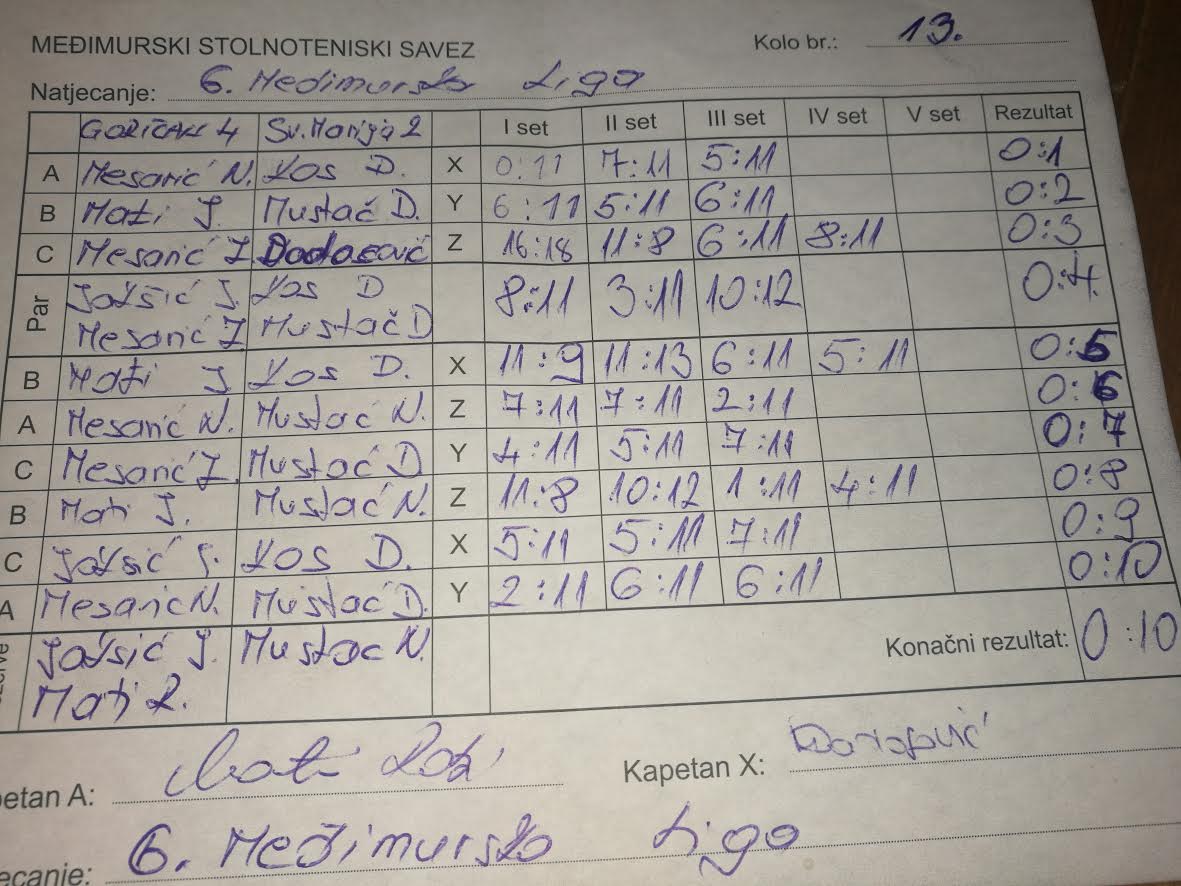 MEĐIMURSKI STOLNOTENISKI SAVEZ
Kolo br.: 13.
Natjecanje: 6. Međimurska Liga
GORIČAN 4 Sv. Marija 2 I set II set III set IV set V set Rezultat
A Mesarić N. Kos D. X 0:11 7:11 5:11 0:1
B Mati J. Mustač D. Y 6:11 5:11 6:11 0:2
C Mesarić I. Z 16:18 11:8 6:11 8:11 0:3
Par Jakšić J. Kos D 8:11 3:11 10:12 0:4
Mesarić I Mustač D
B Mati J. Kos D. X 11:9 11:13 6:11 5:11 0:5
A Mesarić N. Mustač N. Z 7:11 7:11 2:11 0:6
C Mesarić I. Mustać D Y 4:11 5:11 7:11 0:7
B Mati J. Mustać N. Z 11:8 10:12 1:11 4:11 0:8
C Jakšić J. Kos D. X 5:11 5:11 7:11 0:9
A Mesaric N. Mustać D. Y 2:11 6:11 6:11 0:10
Jakšić J. Mustac N. Konačni rezultat: 0:10
Mati R.
etan A: Kapetan X:
6. Međimursko Liga
ecanje: